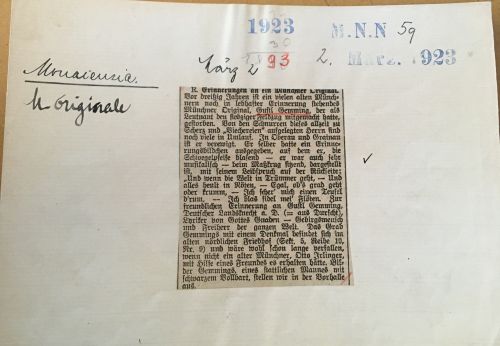 1923 M.N.N 59
30
März 2 93 2. März. 1923
Monacensia.
M Originale
K. Erinnerungen an ein Münchner Original.
Vor dreißig Jahren ist ein vielen alten Münch-
nern noch in lebhafter Erinnerung stehendes
Münchner Original, Gustl Gemming, der als
Leutnant den siebziger Feldzug mitgemacht hatte,
gestorben. Von den Schnurren dieses allzeit zu
Scherz und "Viechereien" aufgelegten Herrn sind
noch viele in Umlauf. In Oberau und Grainau
ist er verewigt. Er selber hatte ein Erinne-
rungsbildchen ausgegeben, auf dem er, die
Schlegelpfeife blasend — er war auch sehr
musikalisch — beim Maßkrug sitzend, dargestellt
ist, mit seinem Leibspruch auf der Rückseite:
"Und wenn die Welt in Trümmer geht, — Und
alles heult in Nöten, — Egal, ob's grad geht
oder krumm, — Ich scher' mich einen Teufel
d'rum, — Ich blas fidel mei' Flöten. Zur
freundlichen Erinnerung an Gustl Gemming,
Deutscher Landsknecht a. D. (= aus Durscht),
Lyriker von Gottes Gnaden — Gebirgsmensch
und Freiherr der ganzen Welt. Das Grab
Gemmings mit einem Denkmal befindet sich im
alten nördlichen Friedhof (Sekt. 5, Reihe 10,
Nr. 9) und wäre wohl schon lange verfallen,
wenn nicht ein alter Münchner, Otto Irlinger,
mit Hilfe eines Freundes es erhalten hätte. Bil-
der Gemmings, eines stattlichen Mannes mit
schwarzem Vollbart, stellen wir in der Vorhalle
aus.